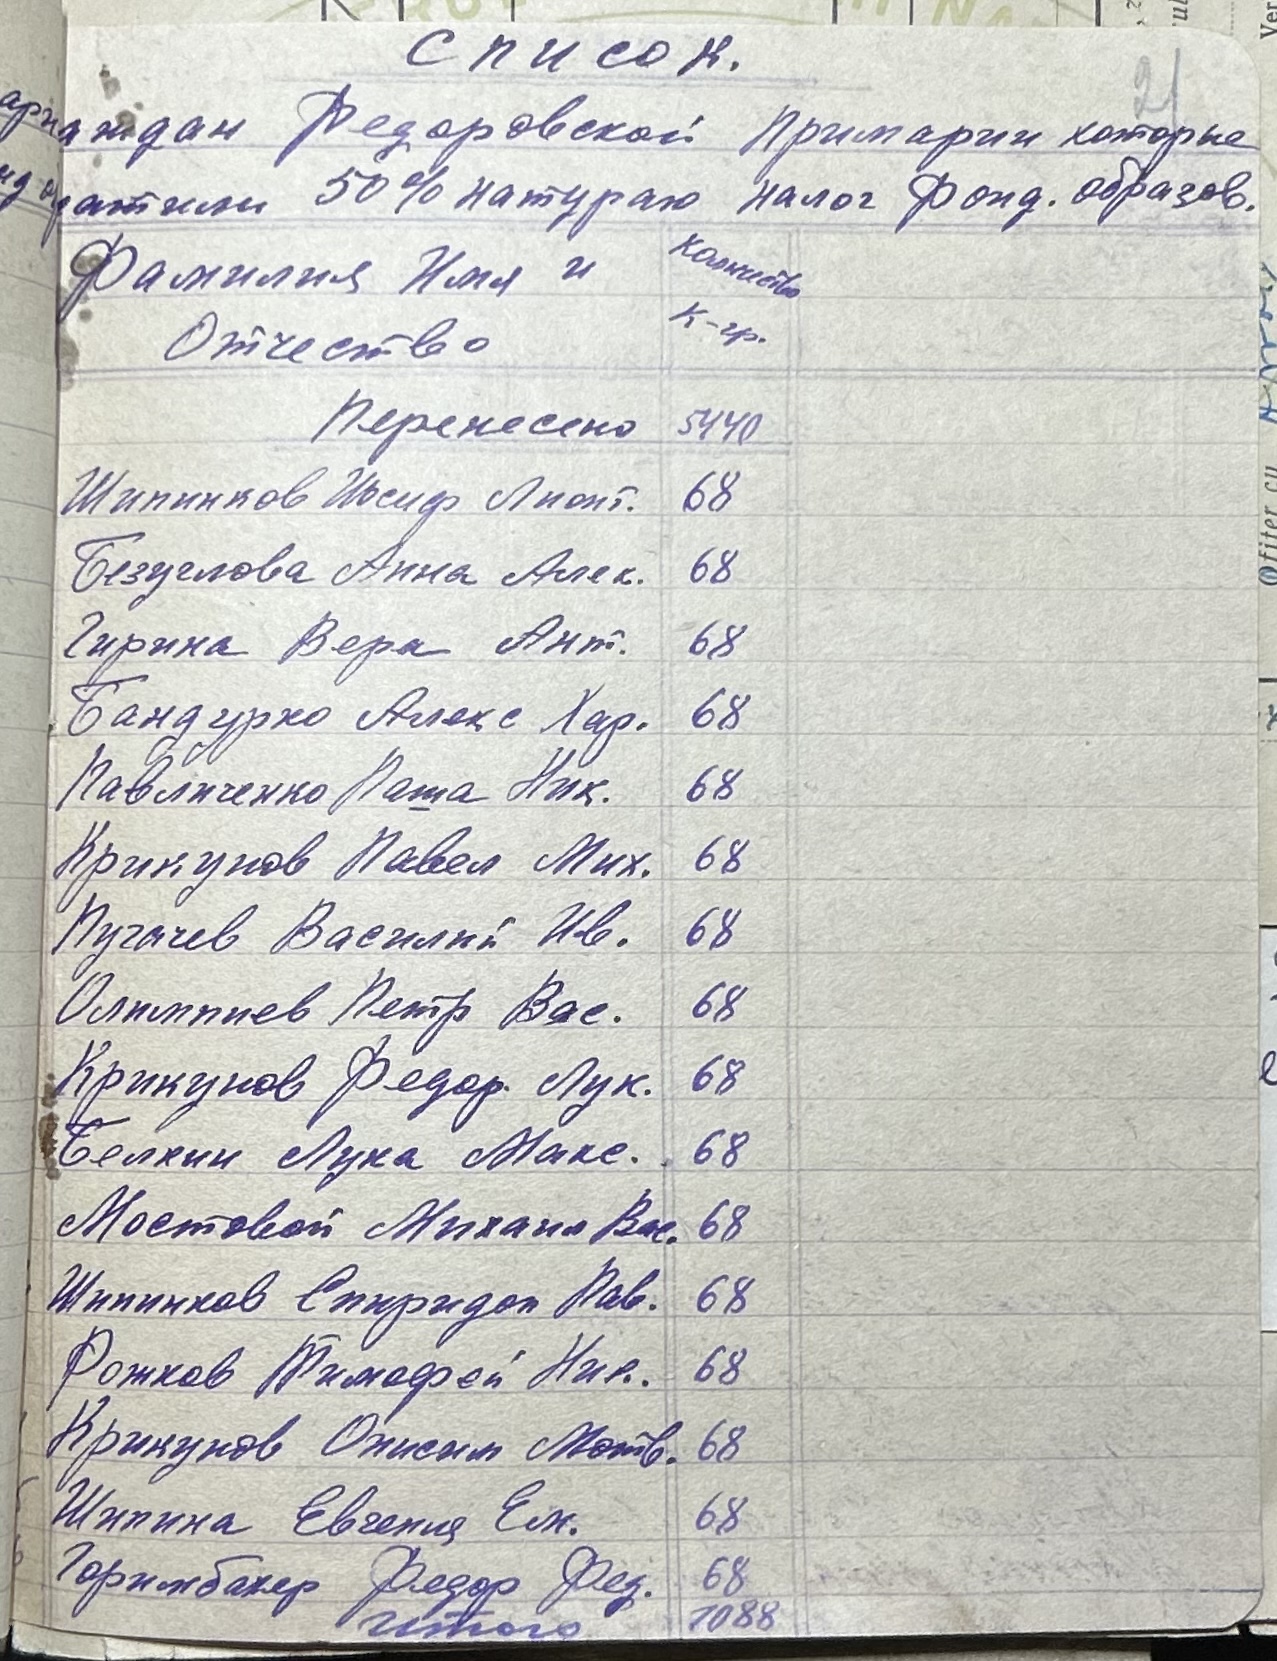 Список.
21
граждан Федоровской Примарии которые
50% натураю налог Фонд. образов.
Фамилия Имя и
Количество
Отчество
К-гр.
Перенесено 5440
Шипинков Иосиф Лионт. 68
Безуглова Анна Алек. 68
Гирина Вера Ант. 68
Бандурко Алекс Хар. 68
Павличенко Паша Ник. 68
Крикунов Павел Мих. 68
Пугачев Василий Ив. 68
Олимпиев Петр Вас. 68
Крикунов Федор Лук. 68
Белкин Лука Макс. 68
Мостовой Михаил Вас. 68
Шипинков Спиридон Пав. 68
Рожков Тимофей Ник. 68
Крикунов Онисим Мотв. 68
Шипина Евгения Ем. 68
Горимбахер Федор Фед. 68
итого 1088
Ofiter cu